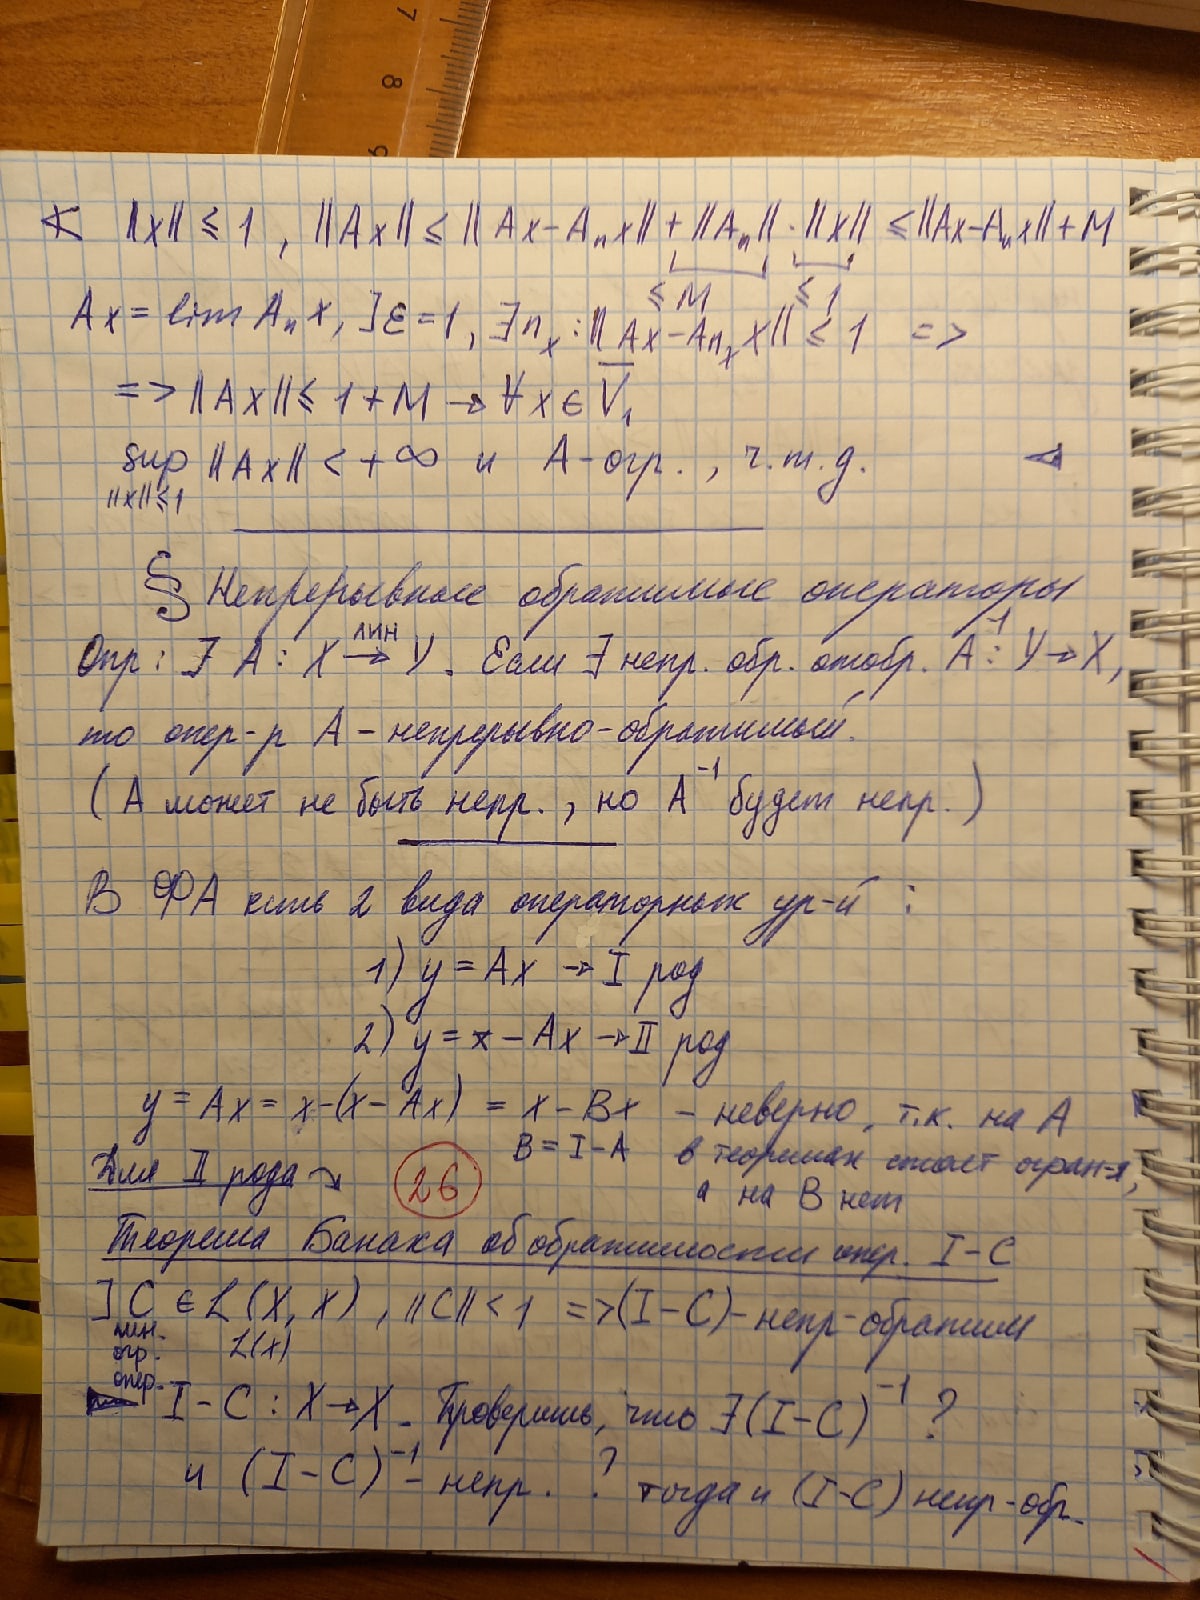 7
8
9
∢ ||x|| ≤ 1 , ||Ax|| ≤ || Ax - Aₙx|| + ||Aₙ|| · ||x|| ≤ ||Ax - Aₙx|| + M
≤ M ≤ 1
Ax = lim Aₙx, ] ε = 1, ∃ nₓ : || Ax - Aₙₓx|| ≤ 1 =>
=> ||Ax|| ≤ 1 + M → ∀ x ∈ V̅₁
sup ||Ax|| < +∞ и A-огр. , ч.т.д. ◁
||x|| ≤ 1
§ Непрерывные обратимые операторы
Опр: ] A : X лин→ Y. Если ∃ непр. обр. отобр. A⁻¹: Y → X,
то опер-р A - непрерывно-обратимый.
(A может не быть непр. , но A⁻¹ будет непр.)
В ФА есть 2 вида операторных ур-й :
1) y = Ax → I род
2) y = x - Ax → II род
y = Ax = x - (x - Ax) = x - Bx - неверно, т.к. на A
B = I - A в теоремах стоят огран-я,
а на B нет
Для II рода ↘ 26
Теорема Банаха об обратимости опер. I - C
] C ∈ L(X, X) , ||C|| < 1 => (I - C) - непр-обратим
лин. L(x)
огр.
опер.
I - C : X → X. Проверишь, что ∃ (I - C)⁻¹ ?
и (I - C)⁻¹ - непр. ? тогда и (I - C) непр-обр.